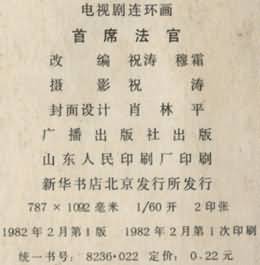 电视剧连环画
首席法官
改 编 祝涛 穆霜
摄 影 祝 涛
封面设计 肖林平
广播出版社出版
山东人民印刷厂印刷
新华书店北京发行所发行
787×1092毫米 1/60开 2印张
1982年2月第1版 1982年2月第1次印刷
统一书号：8236·022 定价：0.22元